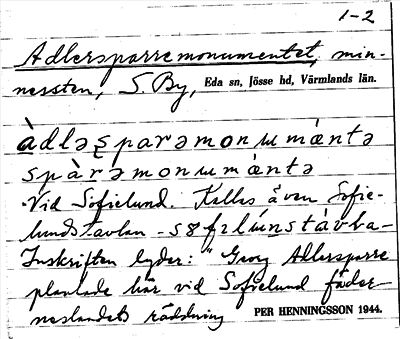 1-2
Adlersparremonumentet, min-
nessten, S. By, Eda sn, Jösse hd, Värmlands län.
àdləʂparəmonɯmɛ́ntə
spàrəmonɯmɛ́ntə
Vid Sofielund. Kallas även Sofie-
lundstavlan - søfɪlúnstàvla -
Inskriften lyder: "Georg Adlersparre
planlade här vid Sofielund fäder-
neslandets räddning PER HENNINGSSON 1944.